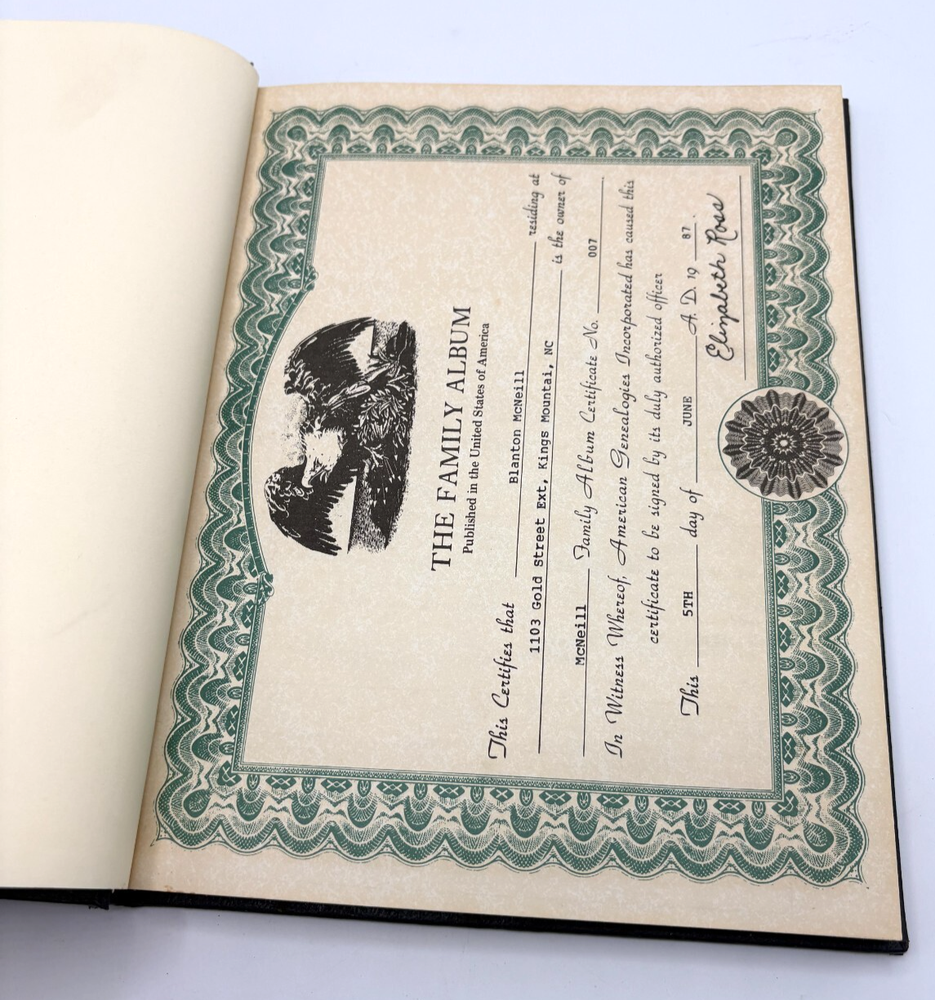 THE FAMILY ALBUM
Published in the United States of America
This Certifies that Blanton McNeill residing at
1103 Gold Street Ext, Kings Mountai, NC is the owner of
McNeill Family Album Certificate No. 007
In Witness Whereof, American Genealogies Incorporated has caused this
certificate to be signed by its duly authorized officer
This 5TH day of JUNE A. D. 19 87.
Elizabeth Ross